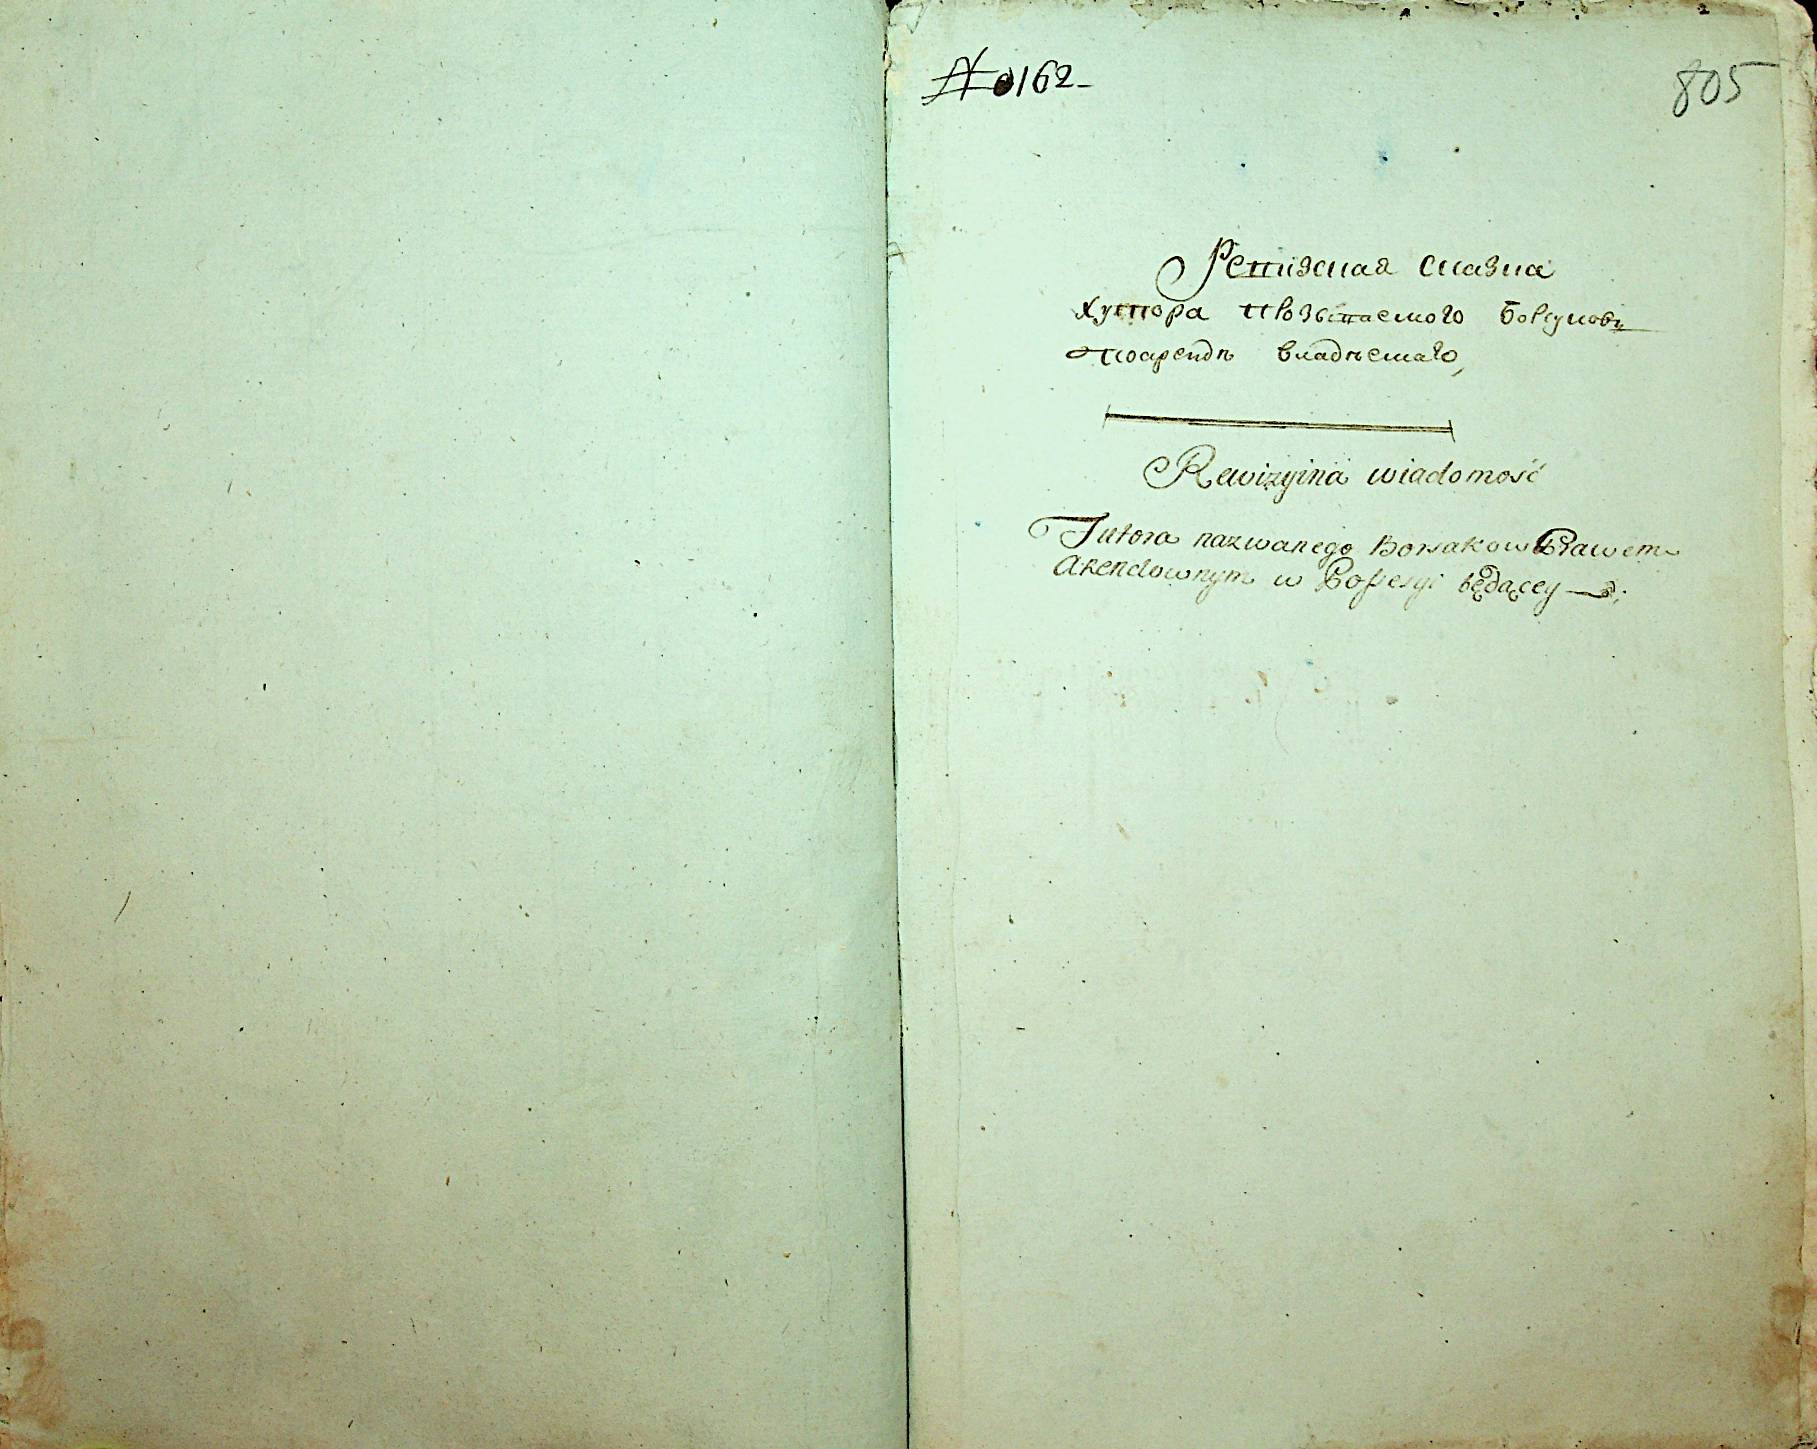 № 162
805
Ревизская сказка
хутора называемого Борсуковъ
по арендѣ владѣемаго,
Rewizyina wiadomość
Futora nazwanego Borsakow Prawem
Arendownym w Possesyi będącey